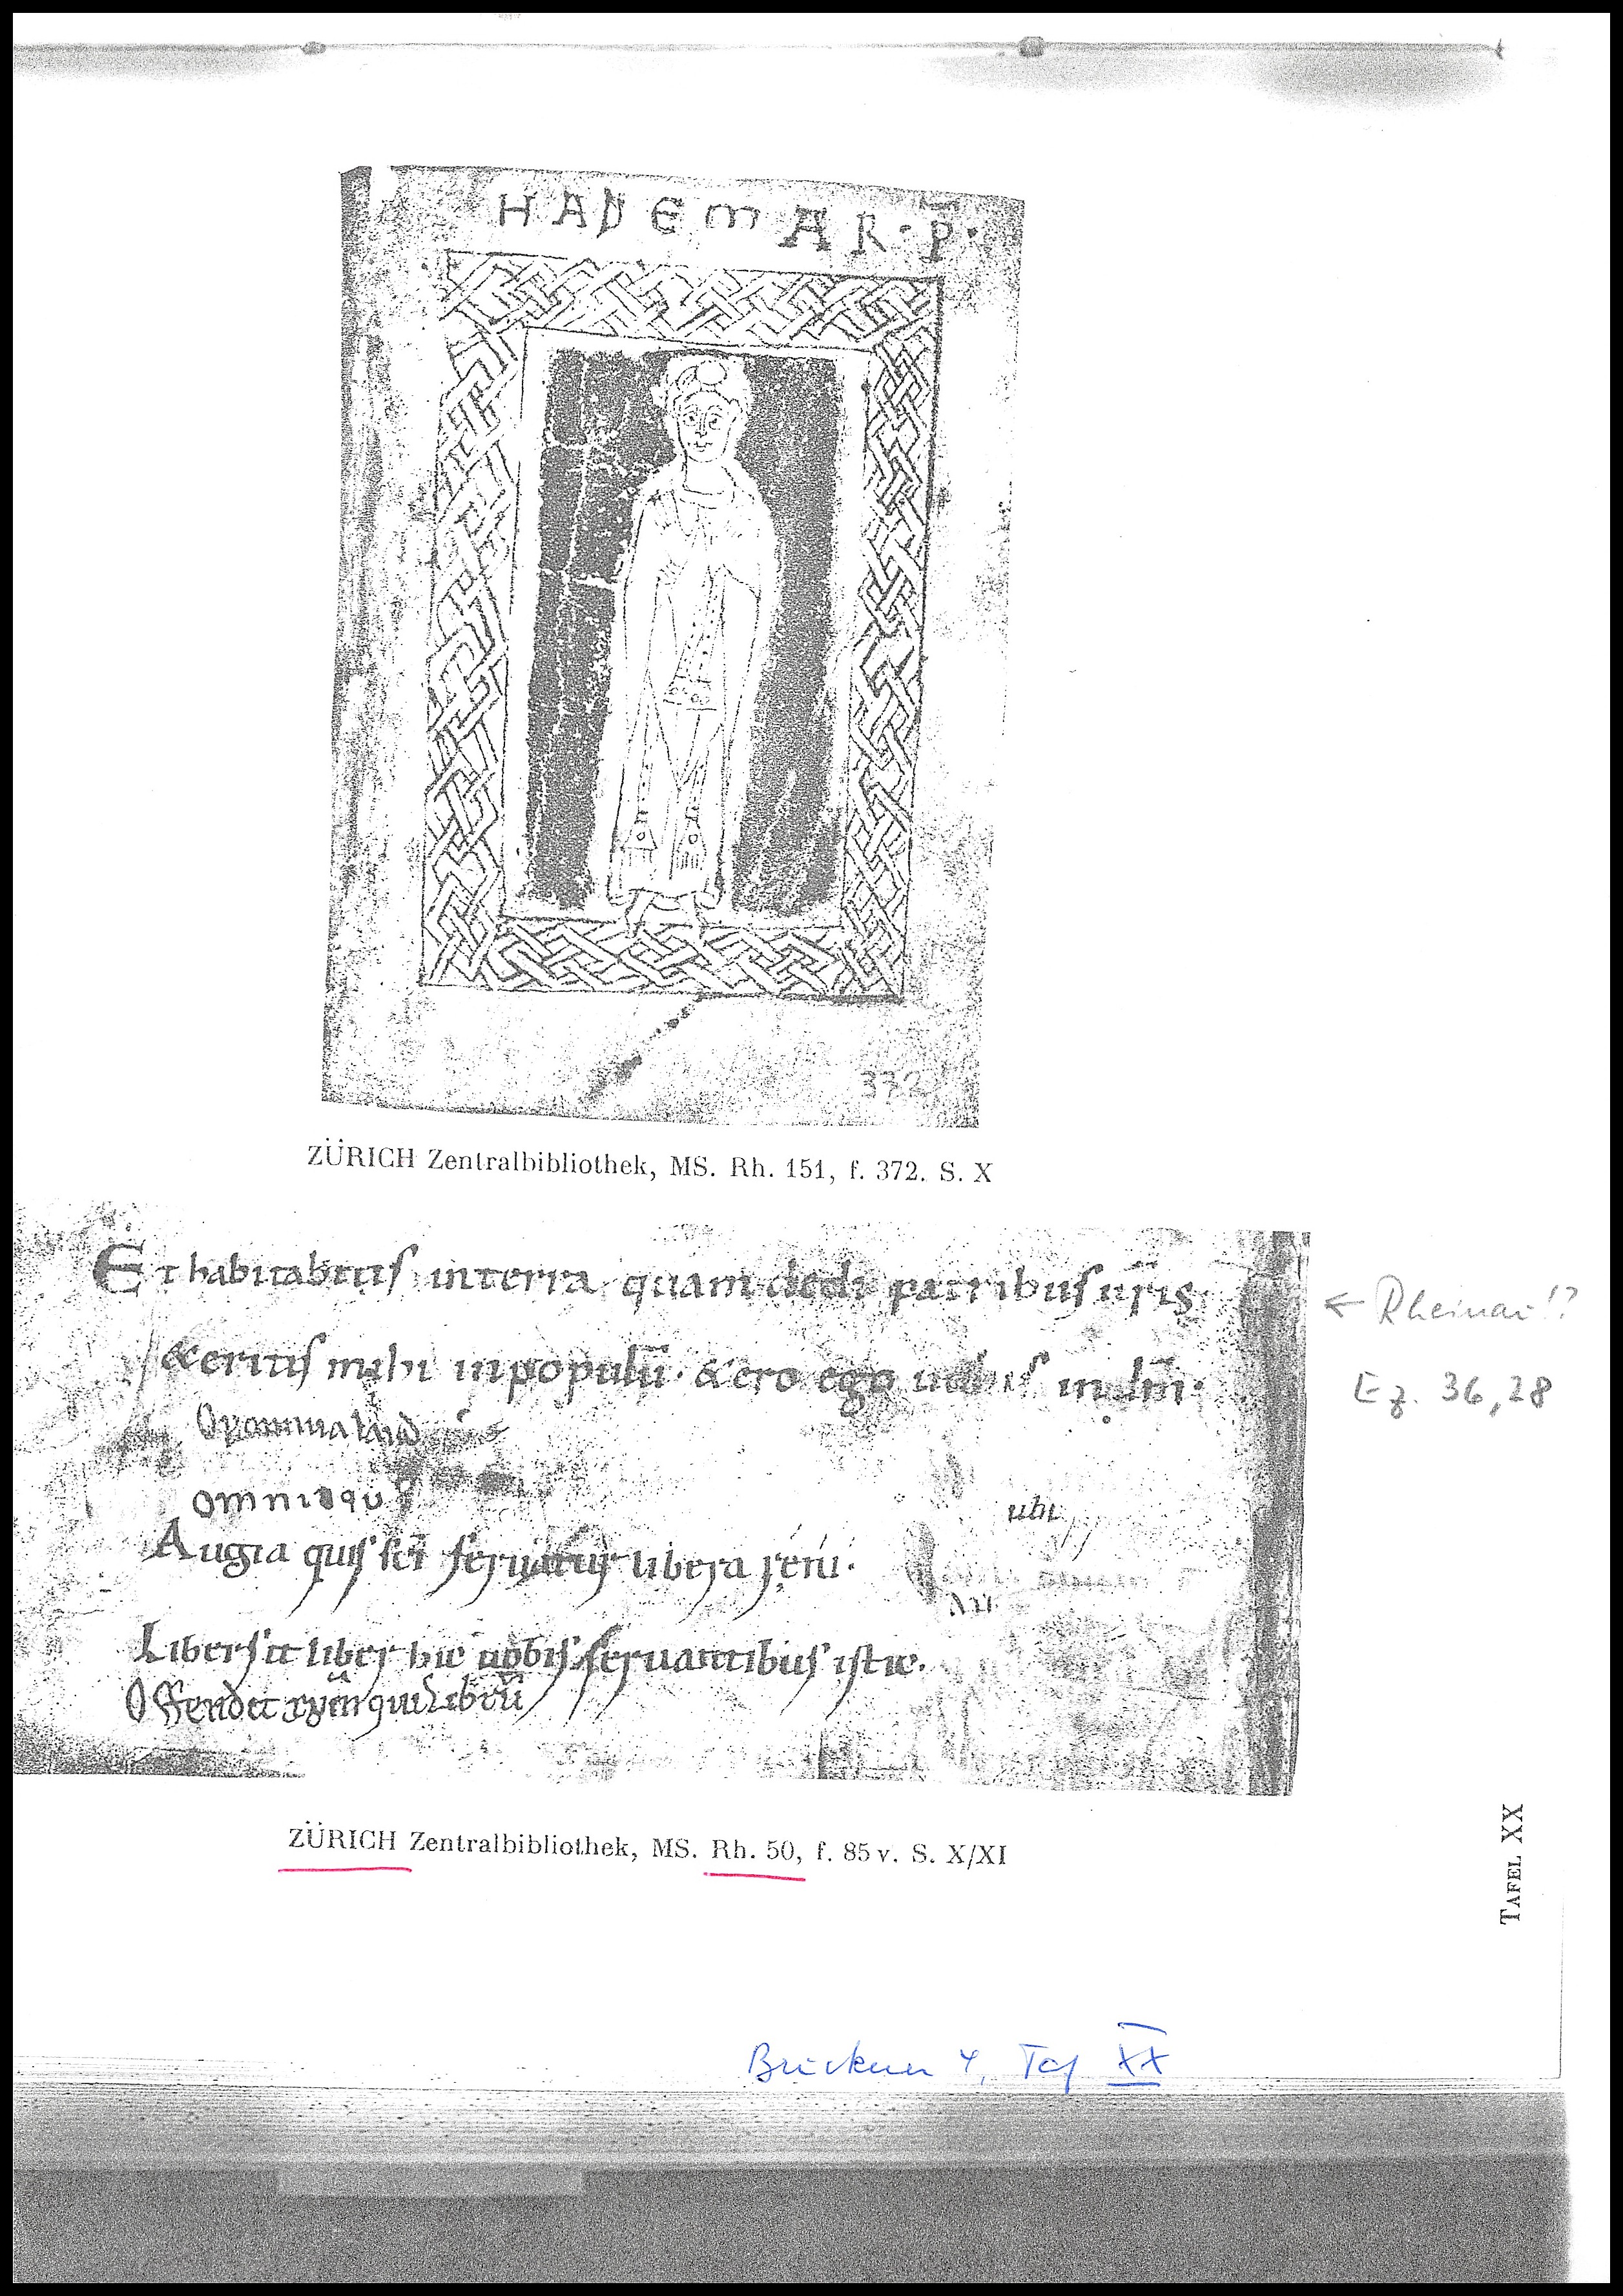 HADEMAR · P̄ ·
372
ZÜRICH Zentralbibliothek, MS. Rh. 151, f. 372. S. X
Et habitabitis in terra quam dedi patribus ur̄is
← Rheinau!?
& eritis mihi in populū · & ero ego uobis in dm̄ ·
Ez. 36,28
omniaqu
ubi
Augia quis sc̄i seruatur libera reni ·
Liber sit liber hic nobis seruantibus istic.
Offendet xp̄m qui librū
ZÜRICH Zentralbibliothek, MS. Rh. 50, f. 85v. S. X/XI
TAFEL XX
Bruckner 4, Taf XX